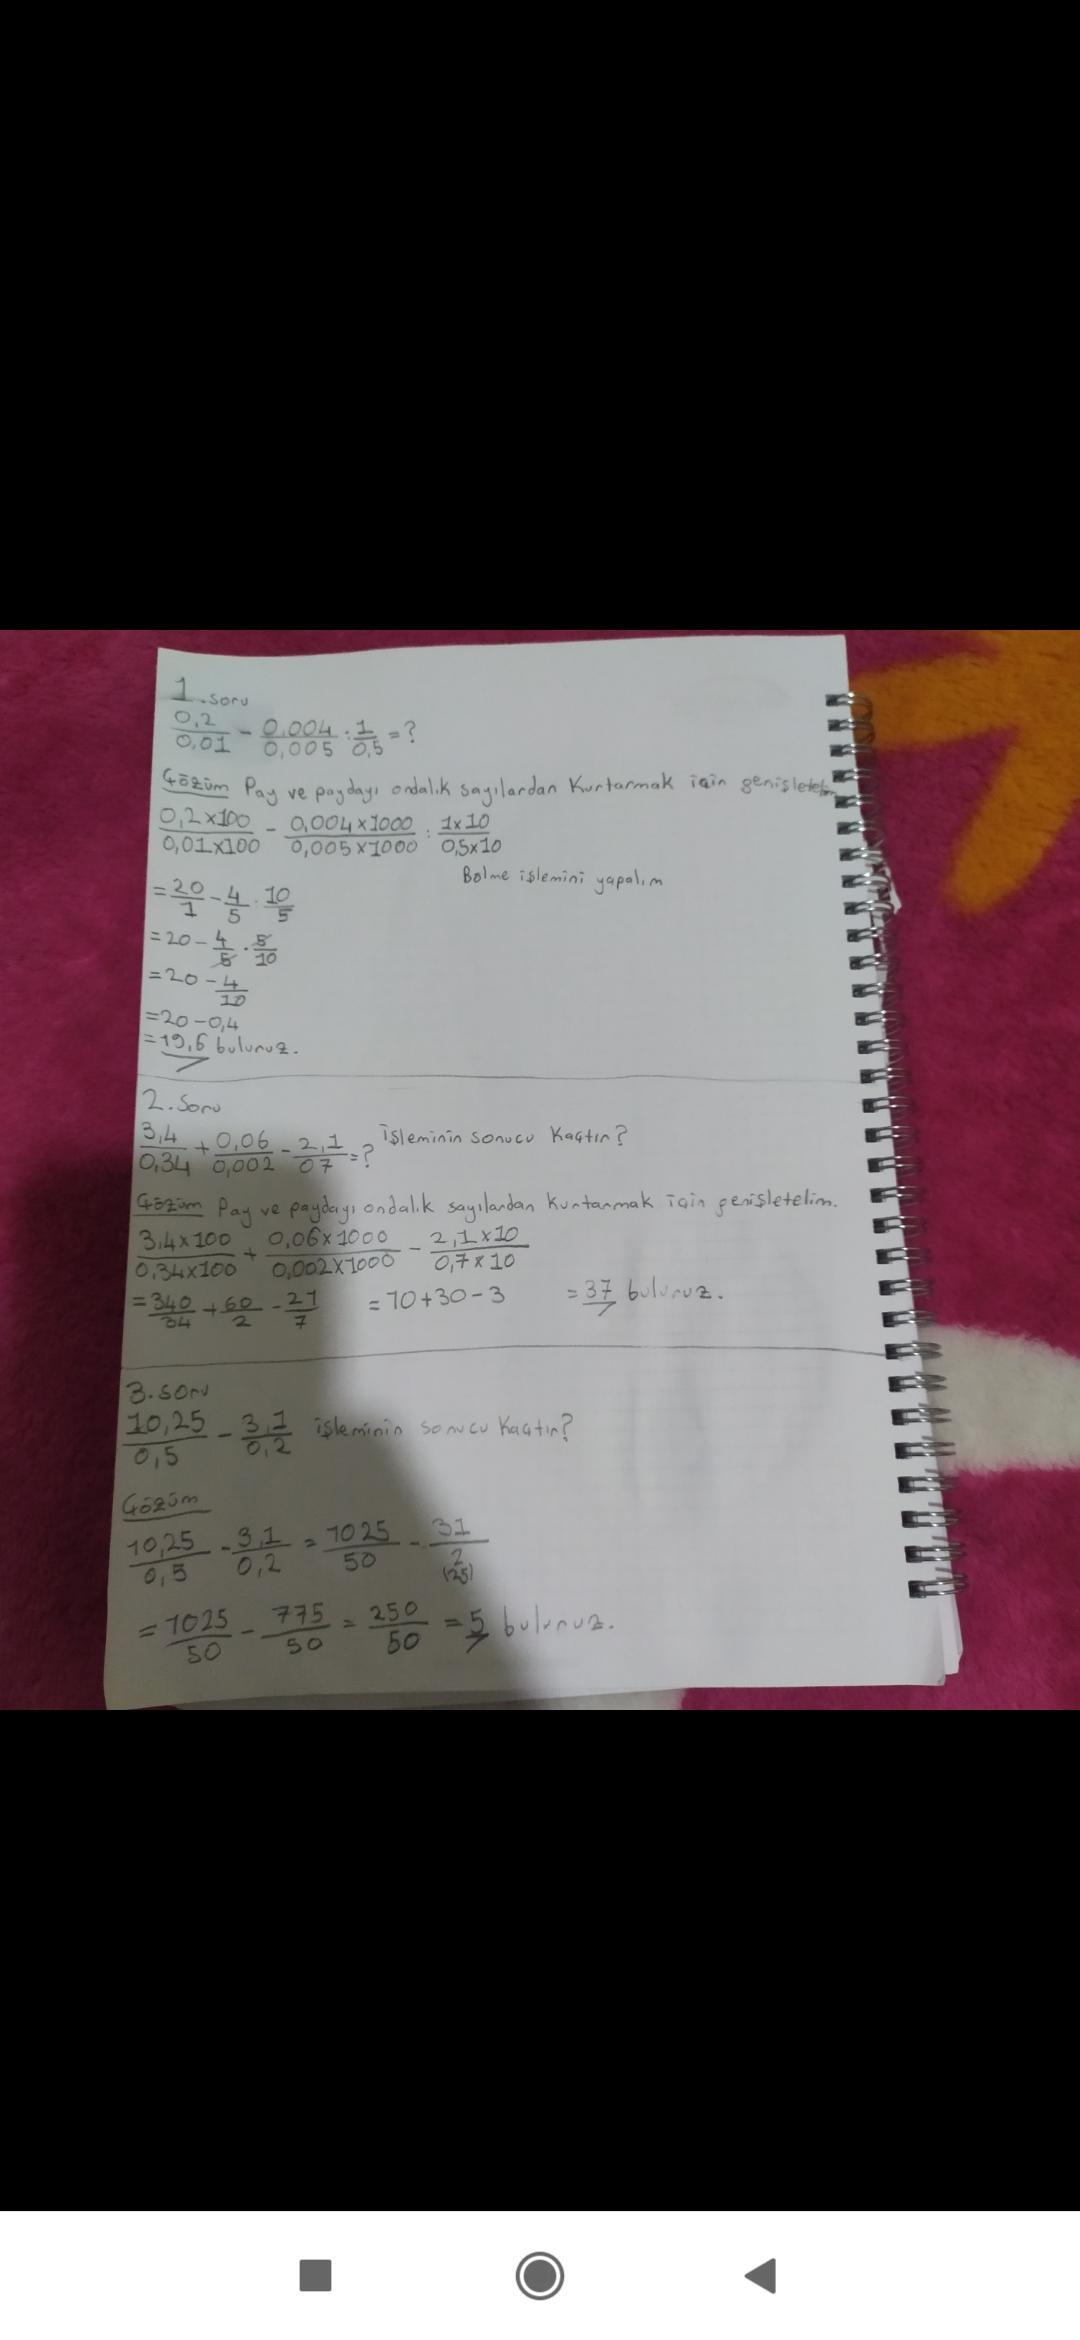 1.soru
0,2/0,01 - 0,004/0,005 : 1/0,5 = ?
Çözüm Pay ve paydayı ondalık sayılardan Kurtarmak için genişletelim
0,2x100/0,01x100 - 0,004x1000/0,005x1000 : 1x10/0,5x10
Bölme işlemini yapalım
= 20/1 - 4/5 : 10/5
= 20 - 4/5 . 5/10
= 20 - 4/10
= 20 - 0,4
= 19,6 buluruz.
2. Soru
3,4/0,34 + 0,06/0,002 - 2,1/07 = ? işleminin sonucu Kaçtır?
Çözüm Pay ve paydayı ondalık sayılardan kurtarmak için genişletelim.
3,4x100/0,34x100 + 0,06x1000/0,002x1000 - 2,1x10/0,7x10
= 340/34 + 60/2 - 21/7 = 10+30-3 = 37 buluruz.
3. soru
10,25/0,5 - 3,1/0,2 işleminin sonucu Kaçtır?
Çözüm
10,25/0,5 - 3,1/0,2 = 1025/50 - 31/2
(25)
= 1025/50 - 775/50 = 250/50 = 5 buluruz.